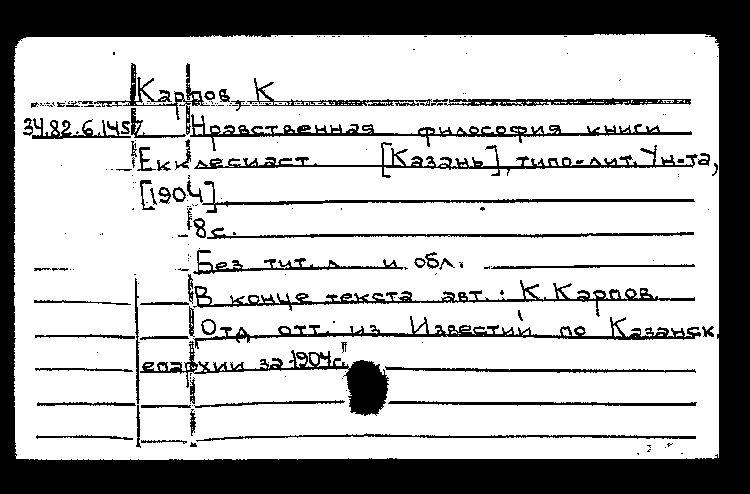 Карпов, К
34.82.6.1457 Нравственная философия книги
Екклесиаст. [Казань], типо-лит. Ун-та,
[1904]
8 с.
Без тит. л и обл.
В конце текста авт.: К. Карпов.
"Отд отт. из Известий по Казанск.
епархии за 1904 г."